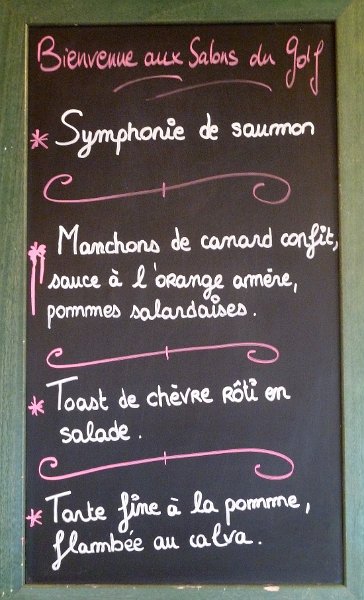 Bienvenue aux Salons du golf
* Symphonie de saumon
* Manchons de canard confit,
sauce à l'orange amère,
pommes salardaises.
* Toast de chèvre rôti en
salade.
* Tarte fine à la pomme,
flambée au calva.